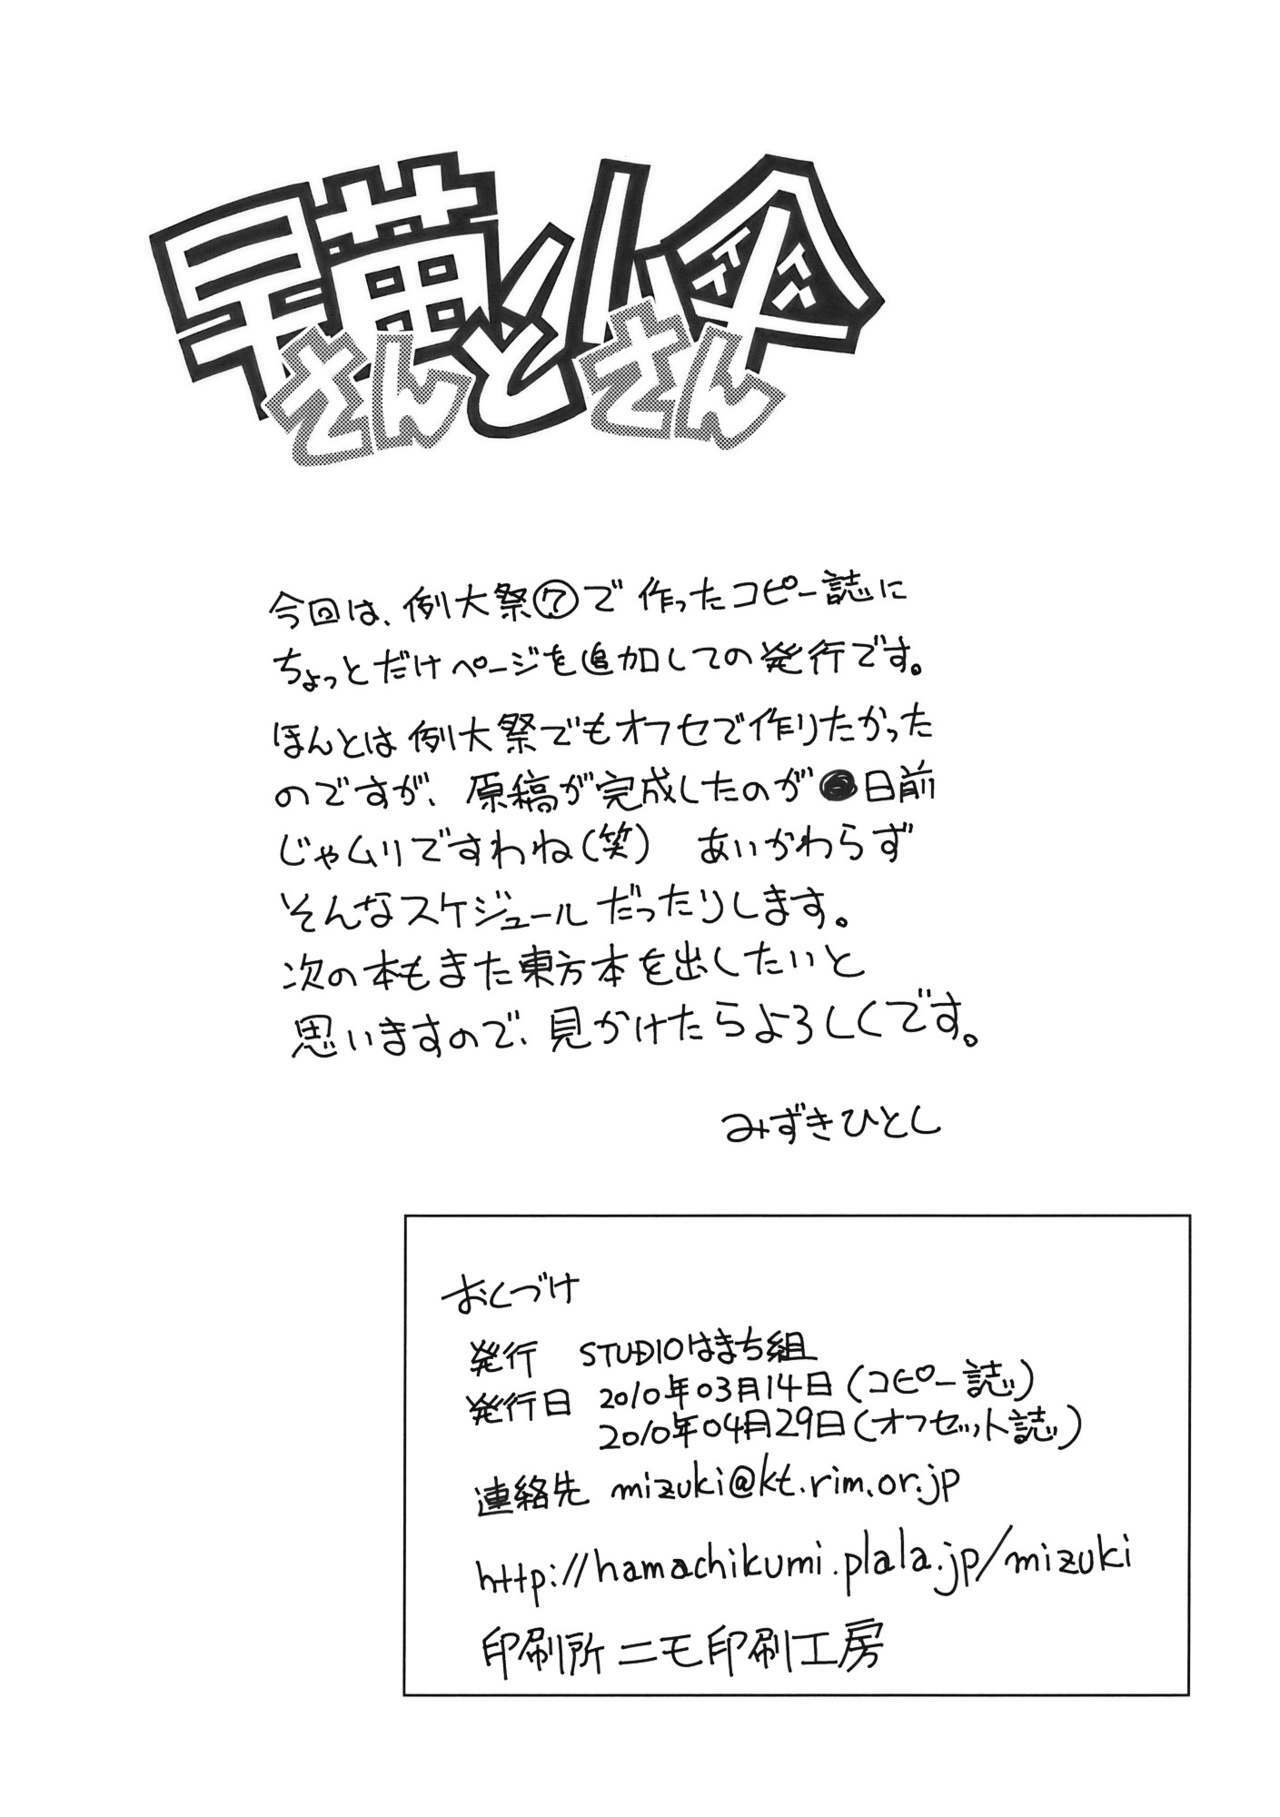 早苗さんと小傘さん
今回は、例大祭⑦で作ったコピー誌に
ちょっとだけページを追加しての発行です。
ほんとは例大祭でもオフセで作りたかった
のですが、原稿が完成したのが●日前
じゃムリですわね(笑)　あいかわらず
そんなスケジュールだったりします。
次の本もまた東方本を出したいと
思いますので、見かけたらよろしくです。
みずきひとし
おくづけ
発行　STUDIOはまち組
発行日　2010年03月14日(コピー誌)
2010年04月29日(オフセット誌)
連絡先　mizuki@kt.rim.or.jp
http://hamachikumi.plala.jp/mizuki
印刷所　ニモ印刷工房